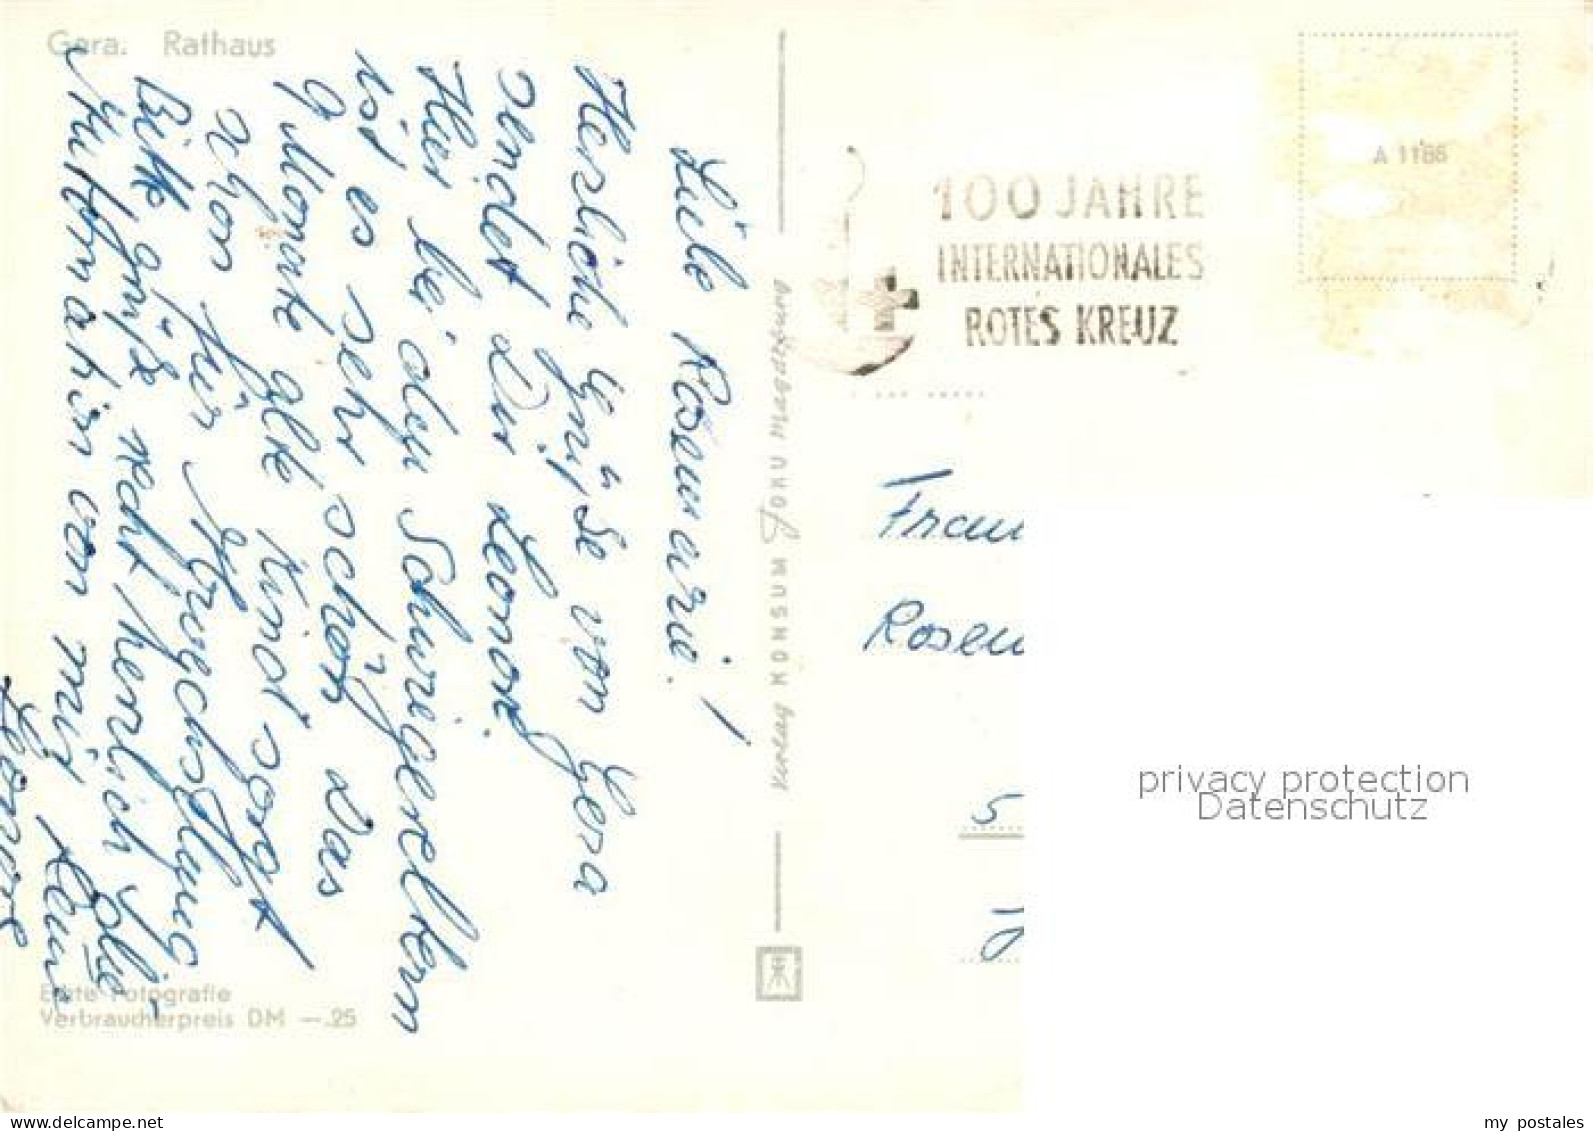 Gera. Rathaus
Liebe Rosemarie!
Herzliche Grüße von Gera
sendet Dir Leonore.
Hier bei den Schwiegereltern
ist es sehr schön, Das
9 Monate alte Kind sorgt
schon für Abwechslung
Bitte grüße recht herzlich Die
von mir Deine
Leonore
Echte Fotografie
Verbraucherpreis DM —.25
Verlag KONSUM FOKU Magdeburg
100 JAHRE
INTERNATIONALES
ROTES KREUZ
A 1186
Frau
Rosem
5
privacy protection
Datenschutz
my postales